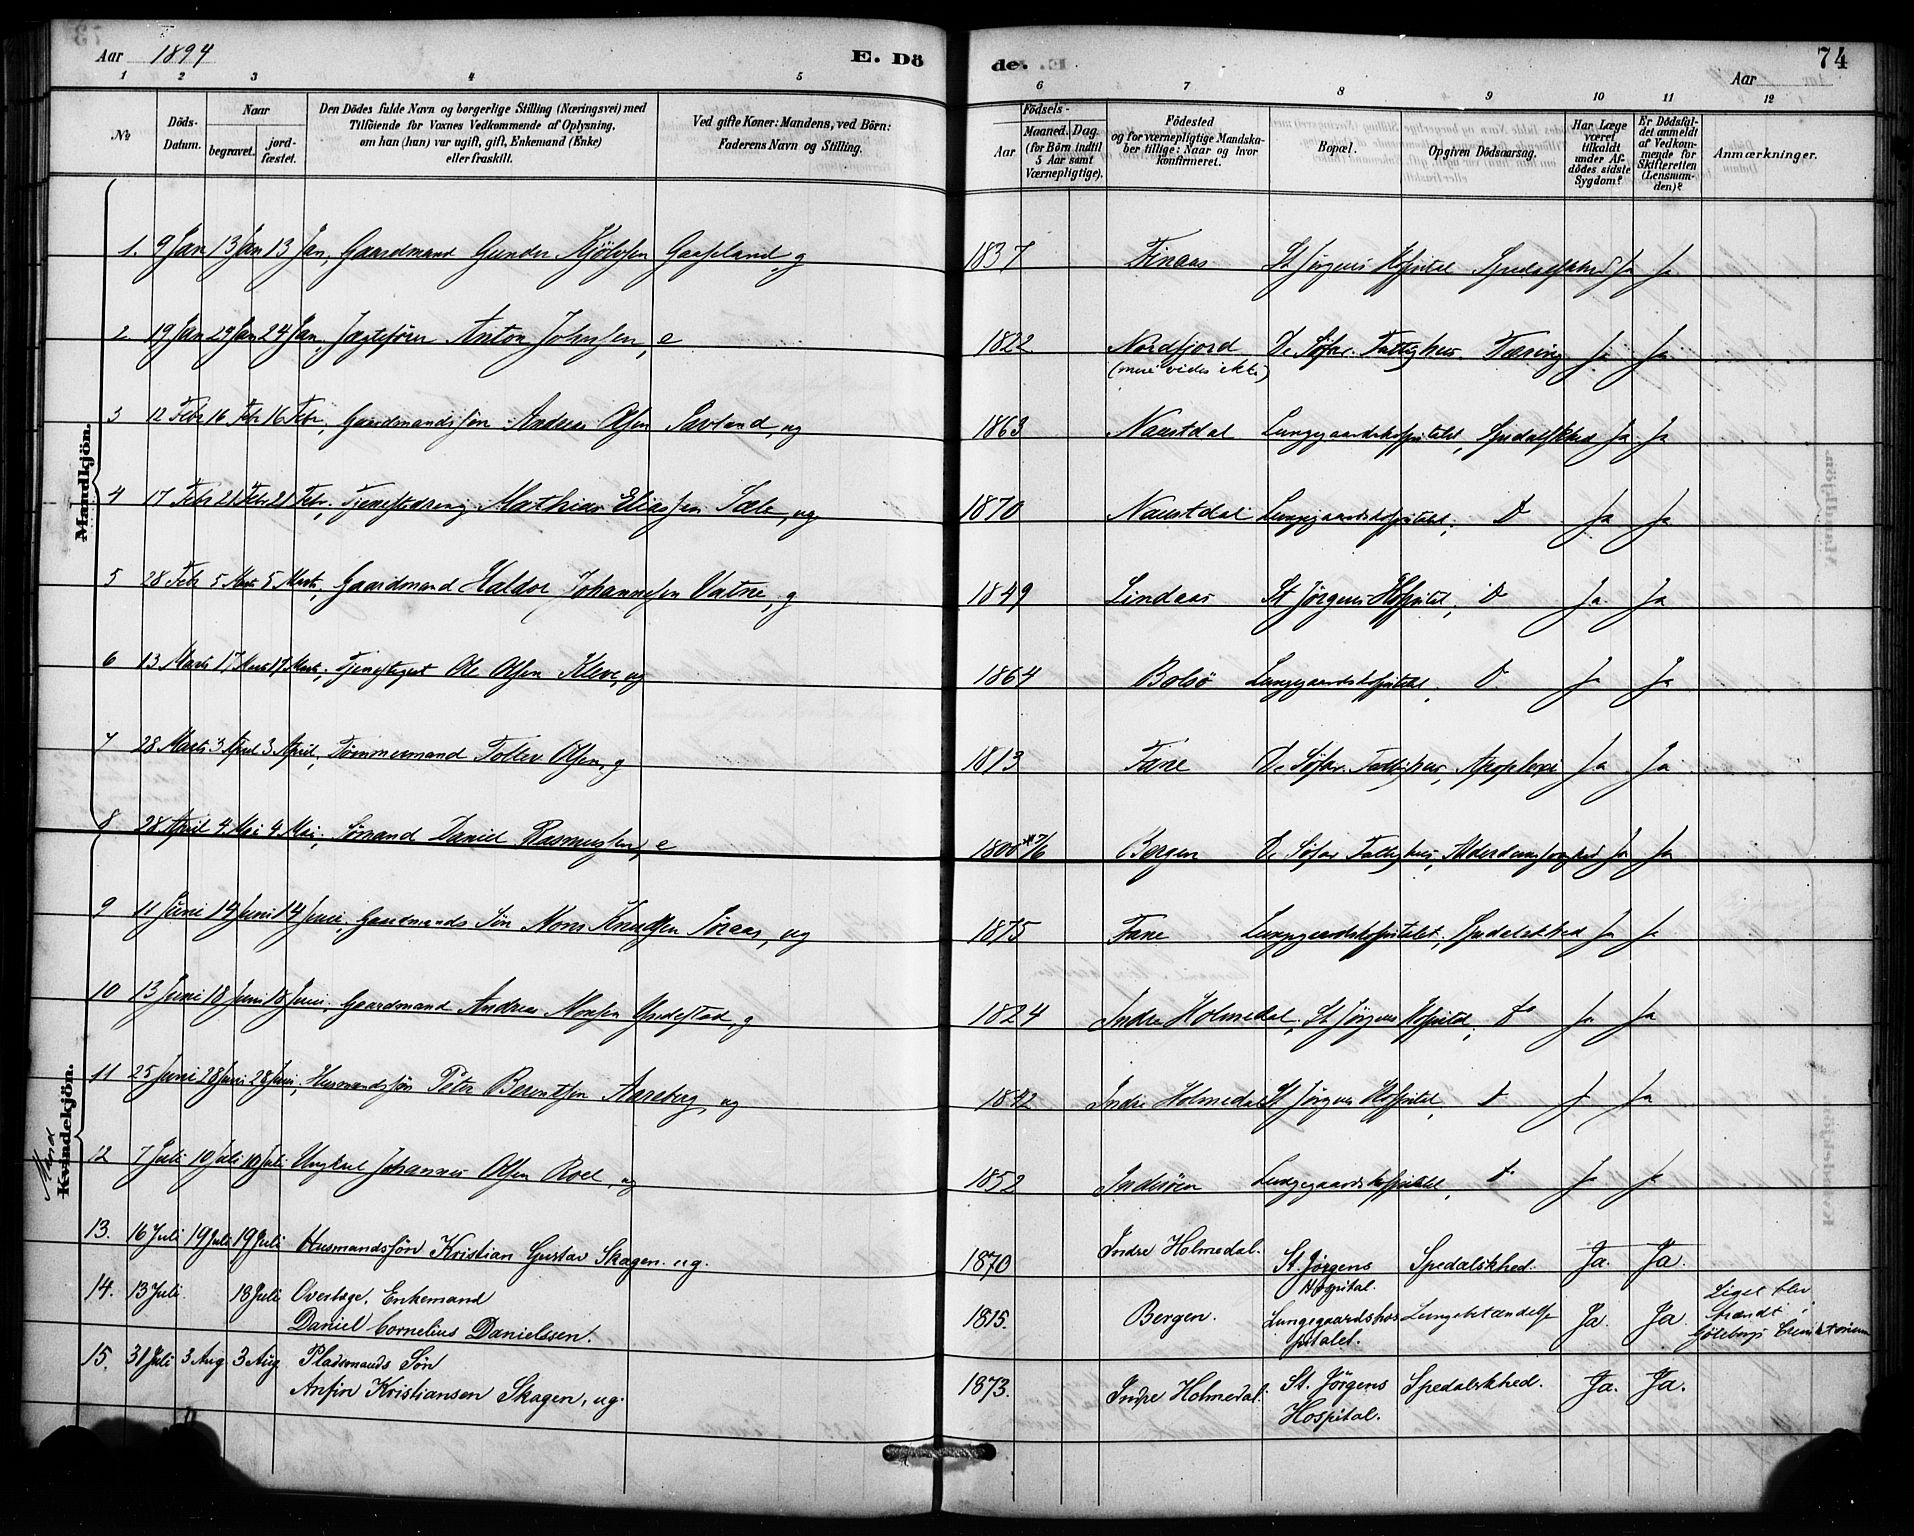 Aar 1894
E. Dö
de.
74
Aar
1 2 3 4 5
6 7 8 9 10 11 12
No
Döds-
Datum.
Naar
begravet.
jord-
fæstet.
Den Dödes fulde Navn og borgerlige Stilling (Næringsvei) med
Tilföiende for Voxnes Vedkommende af Oplysning,
om han (hun) var ugift, gift, Enkemand (Enke)
eller fraskilt.
Ved gifte Koner: Mandens, ved Börn:
Faderens Navn og Stilling.
Födsels-
Aar
Maaned.
Dag.
(for Börn indtil
5 Aar samt
Værnepligtige).
Födested
og for værnepligtige Mandska-
ber tillige: Naar og hvor
konfirmeret.
Bopæl.
Opgiven Dödsaarsag.
Har Læge
været
tilkaldt
under Af-
dödes sidste
Sygdom?
Er Dödsfal-
det anmeldt
af Vedkom-
mende for
Skifteretten
(Lensman-
den)?
Anmærkninger.
Mandkjön.
1. 9 Jan 13 Jan 13 Jan, Gaardmand Gunder g 1837 Finaas St Jørgens Hospital Spedalskhed Ja Ja
2 19 Jan 24 Jan 24 Jan, Jægtefører Anton Johnsen, e 1822 Nordfjord De Søfar. Fattighus. Tæring Ja Ja
(mere vides ikke)
3 12 Febr 16 Febr 16 Febr, Gaardmandssøn Andreas Olsen Savland, ug 1863 Naustdal Lungegaardshospitalet, Spedalskhed Ja Ja
4 17 Febr 21 Febr 21 Febr, Mathias Eliassen Sæle, ug 1870 Naustdal Lungegaardshospitalet, D Ja Ja
5 28 Febr 5 Marts 5 Marts, Gaardmand Haldor Johannessen Vatne, g 1849 Lindaas St Jørgens Hospital, D Ja Ja
6 13 Marts 17 Marts 17 Marts, Ole Olsen Kleve, ug 1864 Bolsø Lungegaardshospitalet, D Ja Ja
7 28 Marts 3 April 3 April, Tømmermand Tollev Olsen, g 1813 Fane De Søfar. Fattighus, Apoplexi Ja Ja
8 28 April 4 Mai 4 Mai, Sømand Daniel Rasmussen, e 1800 7/6 Bergen De Søfar Fattighus, Ja Ja
9 11 Juni 14 Juni 14 Juni, Gaardmands Søn Mons Knudsen Søraas, ug 1875 Fane Lungegaardshospitalet, Spedalskhed Ja Ja
10 13 Juni 18 Juni 18 Juni, Gaardmand Andreas Monsen Yndestad, g 1824 Indre Holmedal, St Jørgens Hospital, Do Ja Ja
Kvindekjön.
Mand
11 25 Juni 28 Juni 28 Juni, Husmandssøn Peter Berentsen Aareberg, ug 1842 Indre Holmedal St Jørgens Hospital, D Ja Ja
12 7 Juli 10 Juli 10 Juli Ungkarl Johannes Olsen Roel, ug 1852 Inderøen Lungegaardshospitalet, Do Ja Ja
13. 16 Juli 19 Juli 19 Juli Husmandssön Kristian Gustav Skagen. ug. 1870 Indre Holmedal. St. Jørgens Spedalskhed. Ja. Ja.
Hospital.
14. 13 Juli. 18 Juli Overlæge, Enkemand Liget blev
Daniel Cornelius Danielssen. 1815. Bergen. Lungegaardshos Lungebetændelse Ja. Ja. brændt i
pitalet. Göteborgs Crematorium
15. 31 Juli 3 Aug 3 Aug Pladsmands Sön
Anfin Kristiansen Skagen, ug. 1873. Indre Holmedal. St. Jørgens Spedalskhed. Ja. Ja.
Hospital.